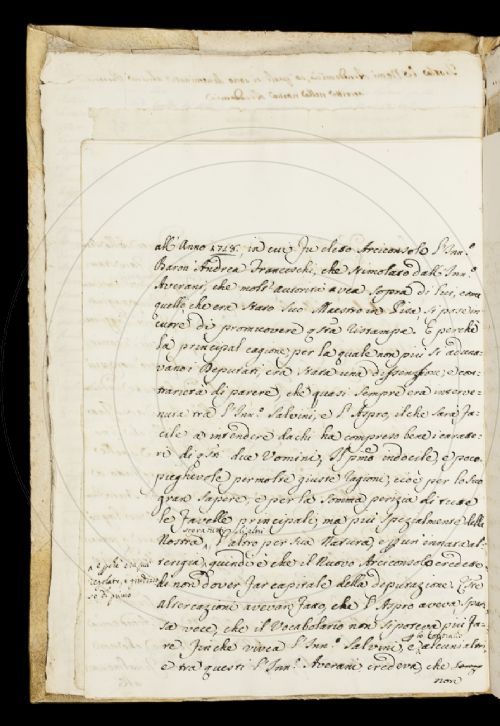 all' Anno 1718, in cui fu eletto Arciconsolo l'Inn.º
Baron' Andrea Franceschi, che stimolato dall' Inn.º
Averani, che molt' autorità avea sopra di lui, come
quello che era stato suo Maestro in Pisa si pose in
cuore di promuovere qsta ristampa. E perchè
la principal cagione, per la quale non più si aduna-
vano i Deputati, era stata una dissensione, e con-
trarietà di parere, che quasi sempre era interve-
nuta trà l'Inn.º Salvini, e l'Aspro, il che sarà fa-
cile a intendere da chi ha compreso bene i caratte-
ri di qsti due Uomini, Il pmo indocile, e poco
pieghevole per molte giuste ragioni, cioè per lo suo
gran sapere, e per la somma perizia di tutte
le favelle principali, ma più spezialmente della
Nostra, l'altro per sua Natura, e p un' innata al-
terigia, quindi è che il Nuovo Arciconsolo credette
di non dover far capitale della deputazione. E tre
altercazione avevan fatto, che l'Aspro aveva spar-
sa voce, che il Vocabolario non si poteva più fa-
re, finchè vivea l'Inn.º Salvini, e alcuni altri,
e tra questi l'Inn.º Averani, credeva, che
non